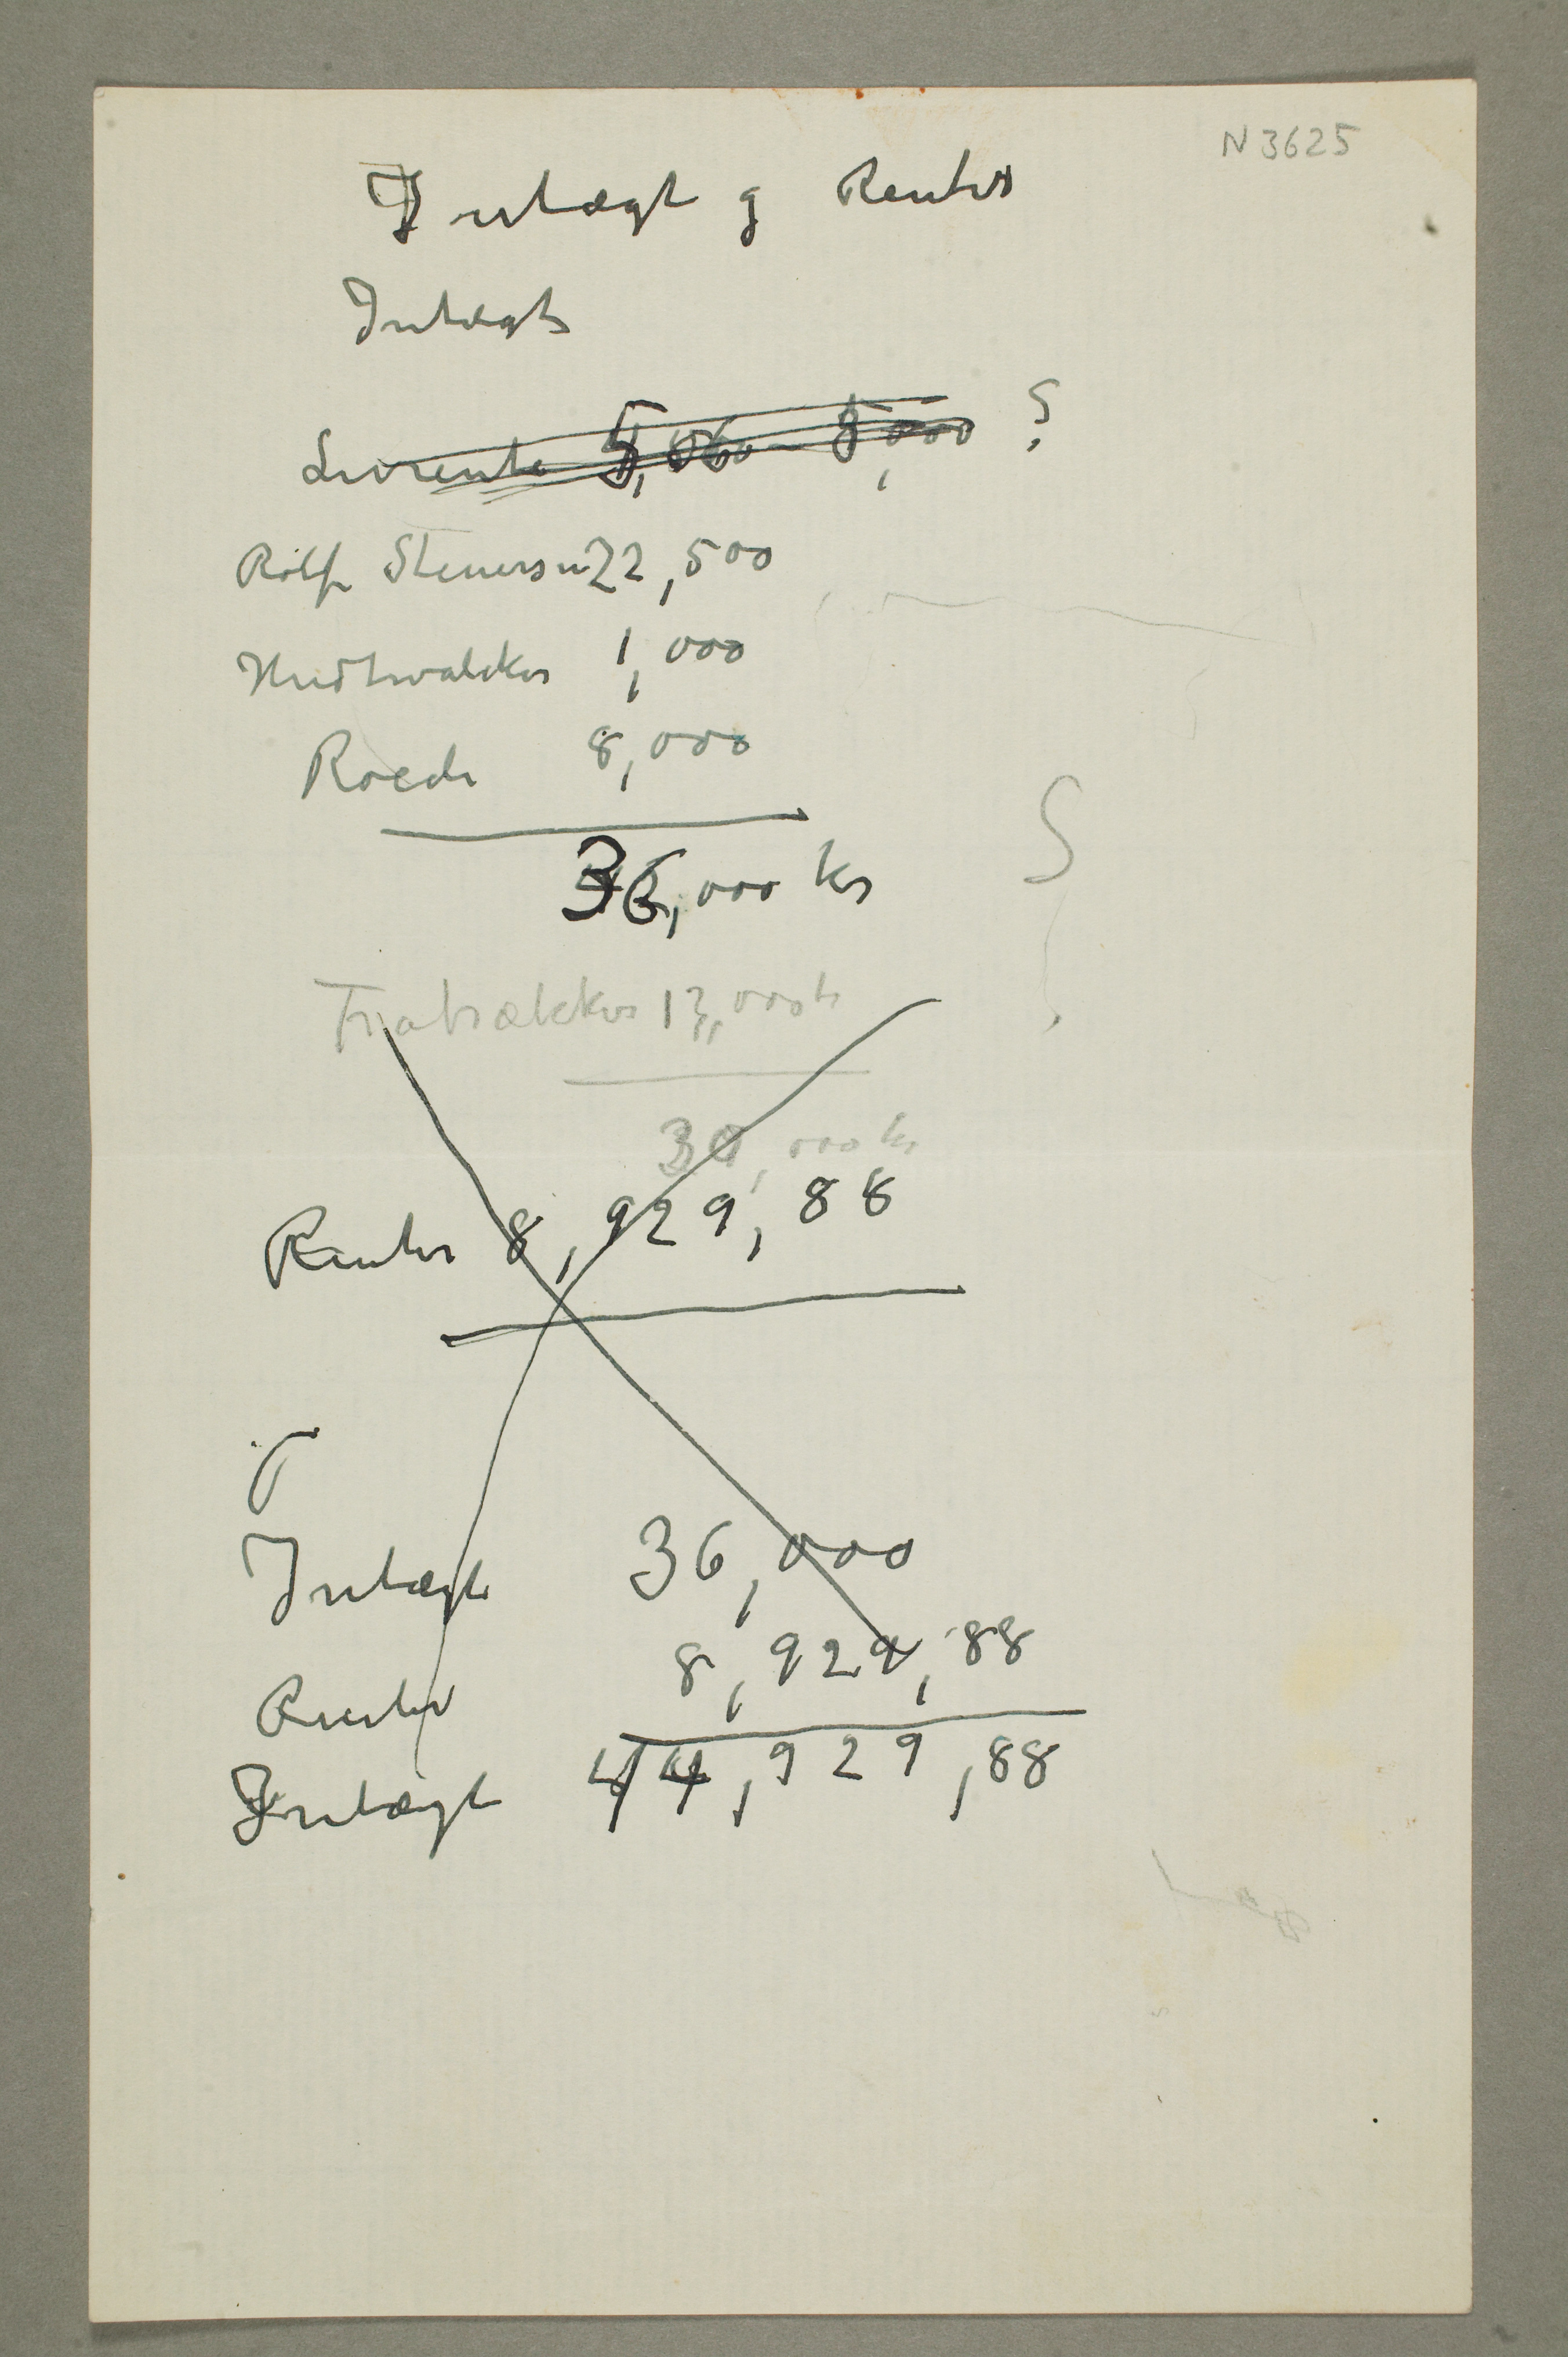 N 3625
Indtægt og Renter
Indtægt
Livrente 5,060 5,000 ?
Rolf Stenersen 22,500
Hudtwalcker 1,000
Roede 8,000
36,000 kr
Fratrækkes 13,000 kr
30,000 kr
Renter 8,929,88
Indtægt 36,000
Renter 8,929,88
Indtægt 44,929,88